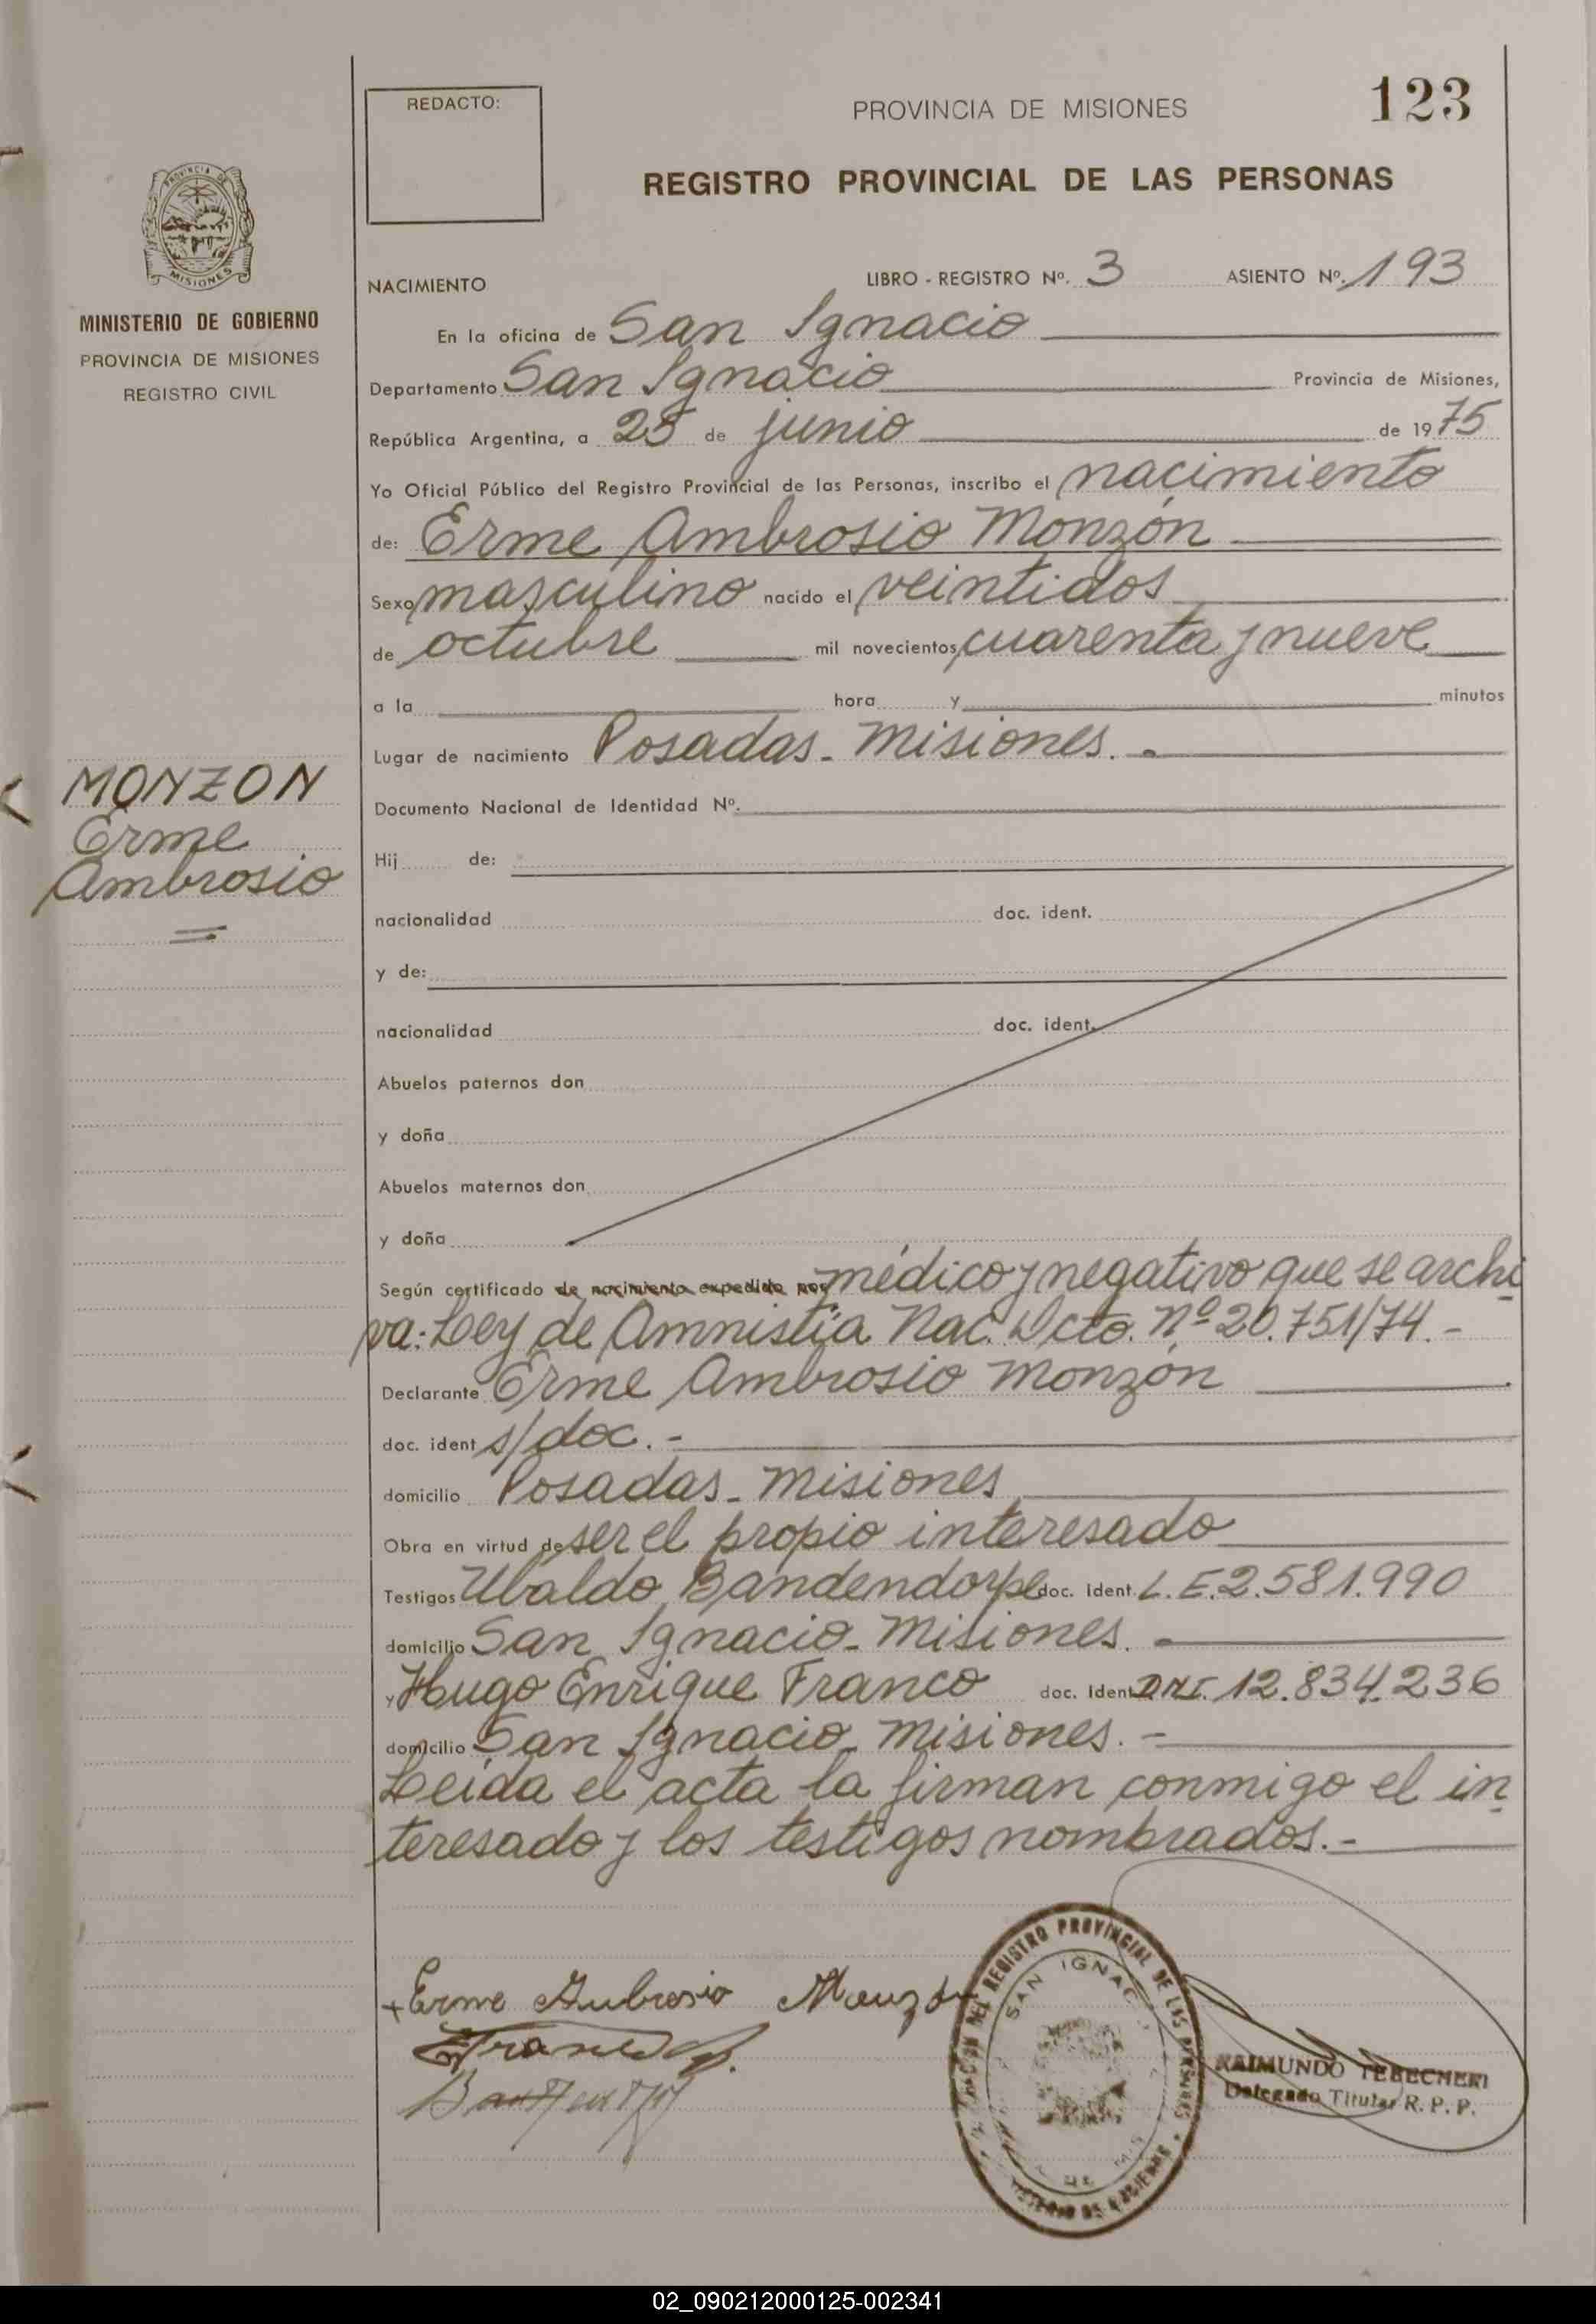 REDACTO:
PROVINCIA DE MISIONES
123
REGISTRO PROVINCIAL DE LAS PERSONAS
PROVINCIA DE
MISIONES
MINISTERIO DE GOBIERNO
PROVINCIA DE MISIONES
REGISTRO CIVIL
NACIMIENTO LIBRO - REGISTRO Nº. 3 ASIENTO Nº. 193
En la oficina de San Ignacio
Departamento San Ignacio Provincia de Misiones,
República Argentina, a 25 de junio de 1975
Yo Oficial Público del Registro Provincial de las Personas, inscribo el nacimiento
de: Erme Ambrosio Monzón
Sexo masculino nacido el veintidos
de octubre mil novecientos cuarenta y nueve
a la hora y minutos
Lugar de nacimiento Posadas - Misiones. -
MONZON
Erme
Ambrosio
Documento Nacional de Identidad Nº.
Hij de:
nacionalidad doc. ident.
y de:
nacionalidad doc. ident.
Abuelos paternos don
y doña
Abuelos maternos don
y doña
Según certificado de nacimiento expedido por médico y negativo que se archi
va: Ley de Amnistia Nac. Dcto. nº 20.751/74.-
Declarante Erme Ambrosio Monzón
doc. ident s/doc.-
domicilio Posadas - Misiones
Obra en virtud de ser el propio interesado
Testigos Ubaldo Bandendorpe doc. ident. L.E.2.581.990
domicilio San Ignacio - Misiones. -
y Hugo Enrique Franco doc. Ident D.N.I. 12.834.236
domicilio San Ignacio - Misiones. -
Leida el acta la firman conmigo el in
teresado y los testigos nombrados.-
+Erme Ambrosio Monzón
REGISTRO PROVINCIAL DE LAS PERSONAS
SAN IGNACIO
RAIMUNDO TEBECHERI
Delegado Titular R. P. P.
02_090212000125-002341